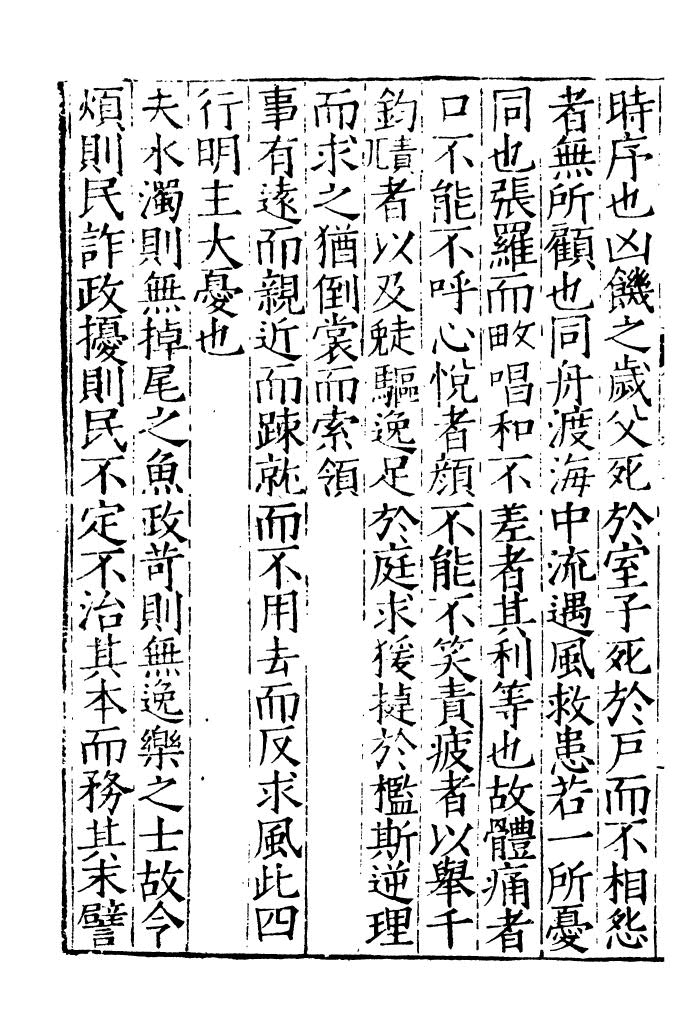 時序也凶饑之歲父死於室子死於戸而不相怨
者無所顧也同舟渡海中流遇風救患若一所憂
同也張羅而畋唱和不差者其利等也故體痛者
口不能不呼心悅者顔不能不笑責疲者以舉千
鈞責兀者以及走兔驅逸足於庭求猨捷於檻斯逆理
而求之猶倒裳而索領
事有遠而親近而踈就而不用去而反求風此四
行明主大憂也
夫水濁則無掉尾之魚政苛則無逸樂之士故令
煩則民詐政擾則民不定不治其本而務其末譬